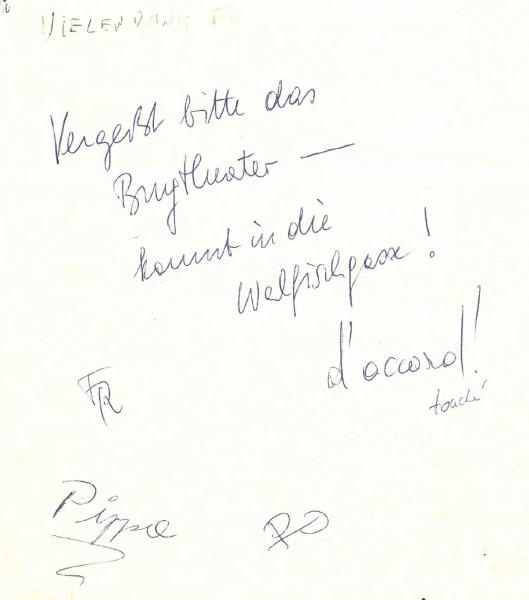 VIELEN DANK FÜ
Vergeßt bitte das
Burgtheater —
kommt in die
Walfischgasse!
d'accord!
touché
FR
Pippa